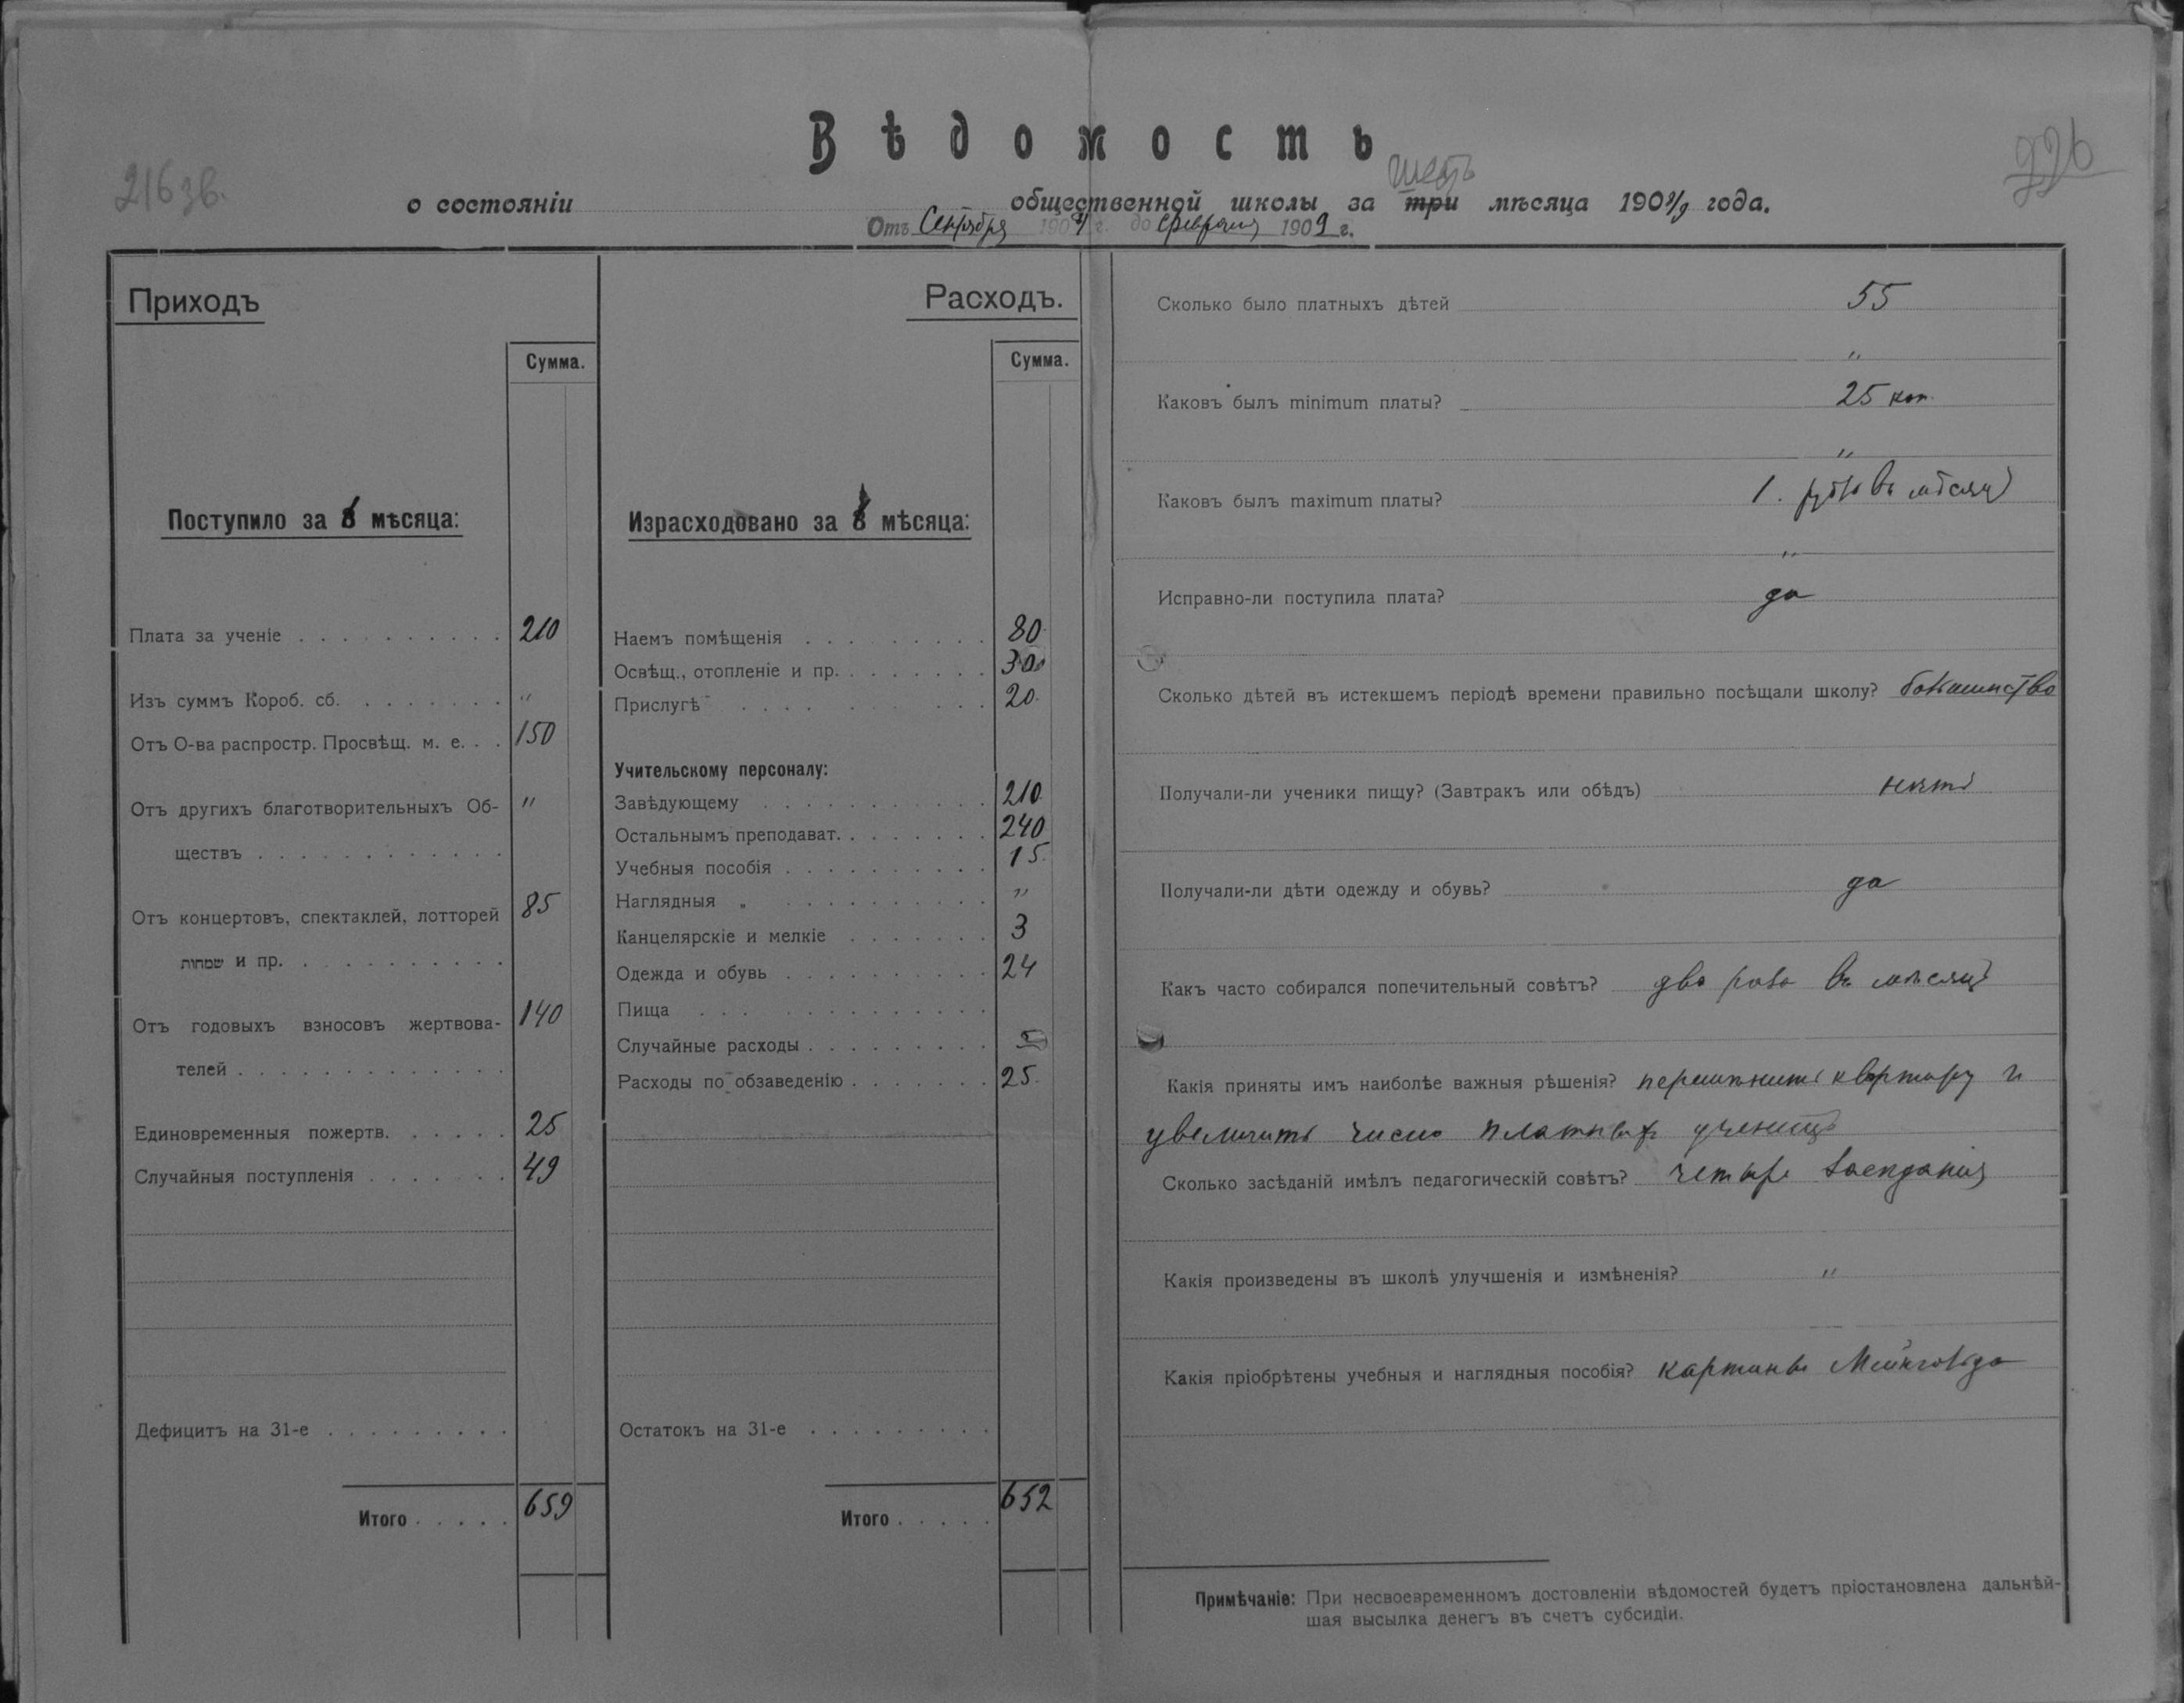 Вѣдомость
216зв.
226
шесть
о состояніи общественной школы за три мѣсяца 1908/9 года.
Отъ Сентября 1908 г. до Февраля 1909 г.
Приходъ
Сумма.
Поступило за 6 мѣсяца:
Плата за ученіе . . . . . . . . . . 210
Изъ суммъ Короб. сб. . . . . . . . "
Отъ О-ва распростр. Просвѣщ. м. е. . . 150
Отъ другихъ благотворительныхъ Об- "
ществъ . . . . . . . . . . . .
Отъ концертовъ, спектаклей, лотторей 85
שמחות и пр. . . . . . . . . . .
Отъ годовыхъ взносовъ жертвова- 140
телей . . . . . . . . . . . . .
Единовременныя пожертв. . . . . . 25
Случайныя поступленія . . . . . . . 49
Дефицитъ на 31-е . . . . . . . . .
Итого . . . . . 659
Расходъ.
Сумма.
Израсходовано за 6 мѣсяца:
Наемъ помѣщенія . . . . . . . . . 80
Освѣщ., отопленіе и пр. . . . . . . . 30
Прислугѣ . . . . . . . . . . . 20
Учительскому персоналу:
Завѣдующему . . . . . . . . . . . 210
Остальнымъ преподават. . . . . . . . 240
Учебныя пособія . . . . . . . . . . 15
Наглядныя „ . . . . . . . . . . "
Канцелярскіе и мелкіе . . . . . . . 3
Одежда и обувь . . . . . . . . . . 24
Пища . . . . . . . . . . . . . .
Случайные расходы . . . . . . . . . 5
Расходы по обзаведенію . . . . . . . 25
Остатокъ на 31-е . . . . . . . . .
Итого . . . . . 652
Сколько было платныхъ дѣтей 55
"
Каковъ былъ minimum платы? 25 коп.
"
Каковъ былъ maximum платы? 1. рубль въ мѣсяцъ
"
Исправно-ли поступила плата? да
Сколько дѣтей въ истекшемъ періодѣ времени правильно посѣщали школу? большинство
Получали-ли ученики пищу? (Завтракъ или обѣдъ) нѣтъ
Получали-ли дѣти одежду и обувь? да
Какъ часто собирался попечительный совѣтъ? два раза въ мѣсяцъ
Какія приняты имъ наиболѣе важныя рѣшенія? перемѣнить квартиру и
увеличить число платныхъ ученицъ
Сколько засѣданій имѣлъ педагогическій совѣтъ? четыре засѣданія
Какія произведены въ школѣ улучшенія и измѣненія? "
Какія пріобрѣтены учебныя и наглядныя пособія? картины Мейнгольда
Примѣчаніе: При несвоевременномъ достовленіи вѣдомостей будетъ пріостановлена дальнѣй-
шая высылка денегъ въ счетъ субсидіи.